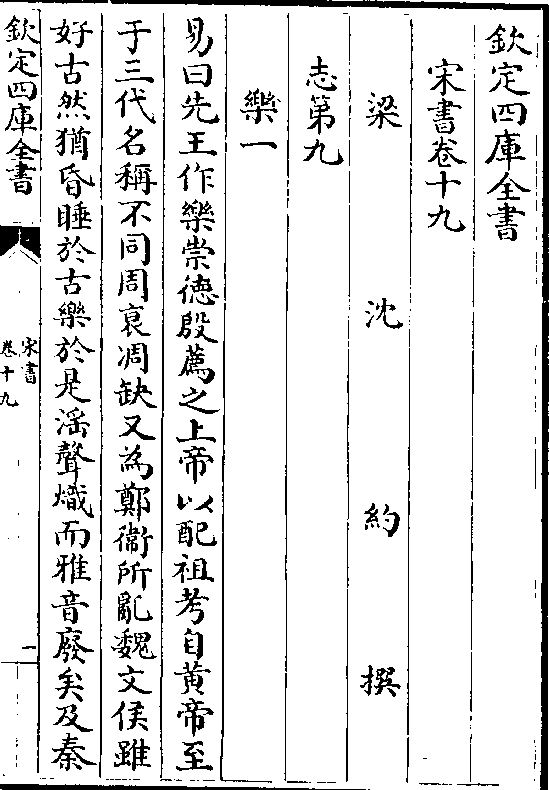 欽定四庫全書
宋書卷十九
梁沈約撰
志第九
樂一
易曰先王作樂崇德殷薦之上帝以配祖考自黄帝至
于三代名稱不同周衰凋缺又為鄭衞所亂魏文侯雖
好古然猶昏睡於古樂於是滛聲熾而雅音廢矣及秦
欽定四庫全書
宋書
卷十九
一